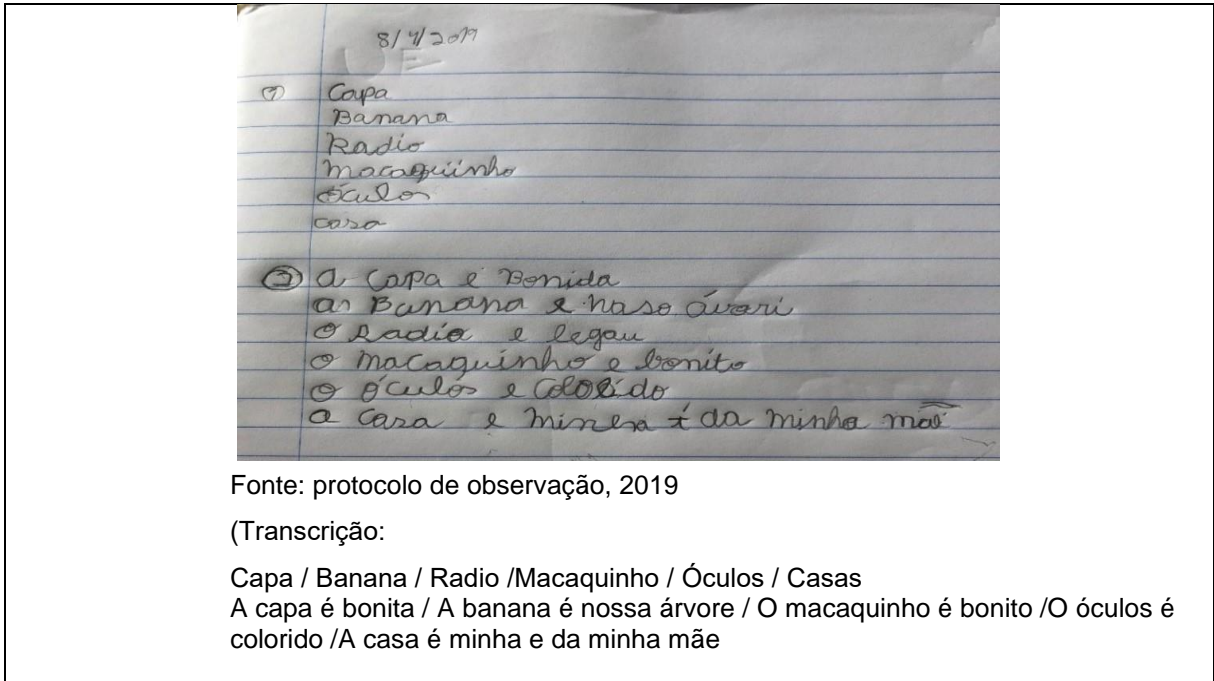 8/4/2019
1 Capa
Banana
Radio
macaquinho
óculos
casa
2 a Capa e Bonida
as Banana e naso ávari
o Radio e legau
o macaquinho e bonito
o óculos e colorido
a casa e minha i da minha mãe
Fonte: protocolo de observação, 2019
(Transcrição:
Capa / Banana / Radio /Macaquinho / Óculos / Casas
A capa é bonita / A banana é nossa árvore / O macaquinho é bonito /O óculos é
colorido /A casa é minha e da minha mãe